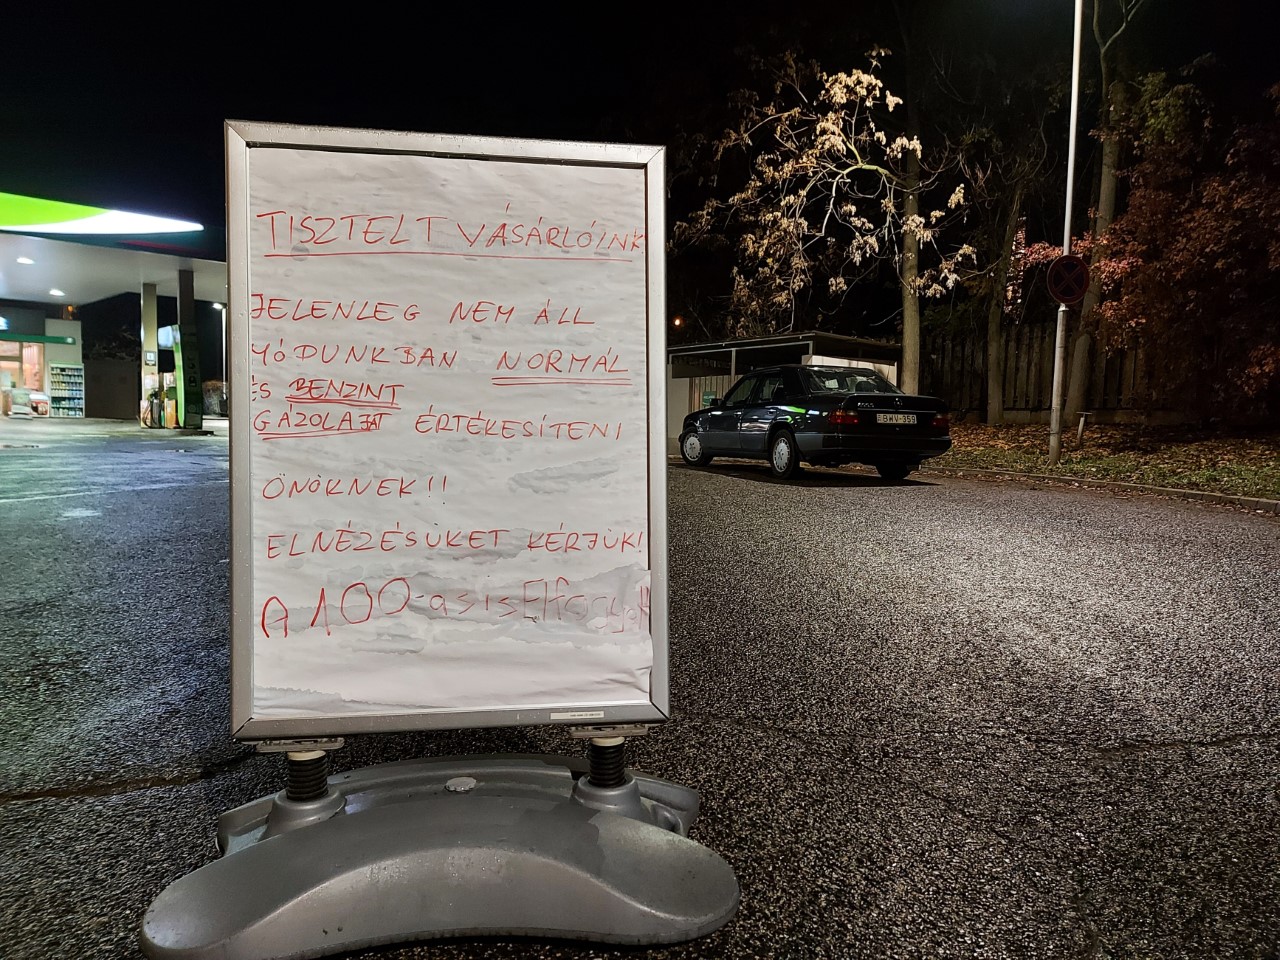 TISZTELT VÁSÁRLÓINK
JELENLEG NEM ÁLL
MÓDUNKBAN NORMÁL
ÉS BENZINT
GÁZOLAJAT ÉRTÉKESÍTENI
ÖNÖKNEK!!
ELNÉZÉSÜKET KÉRJÜK!
A 100-as is Elfogyott
BWV-359